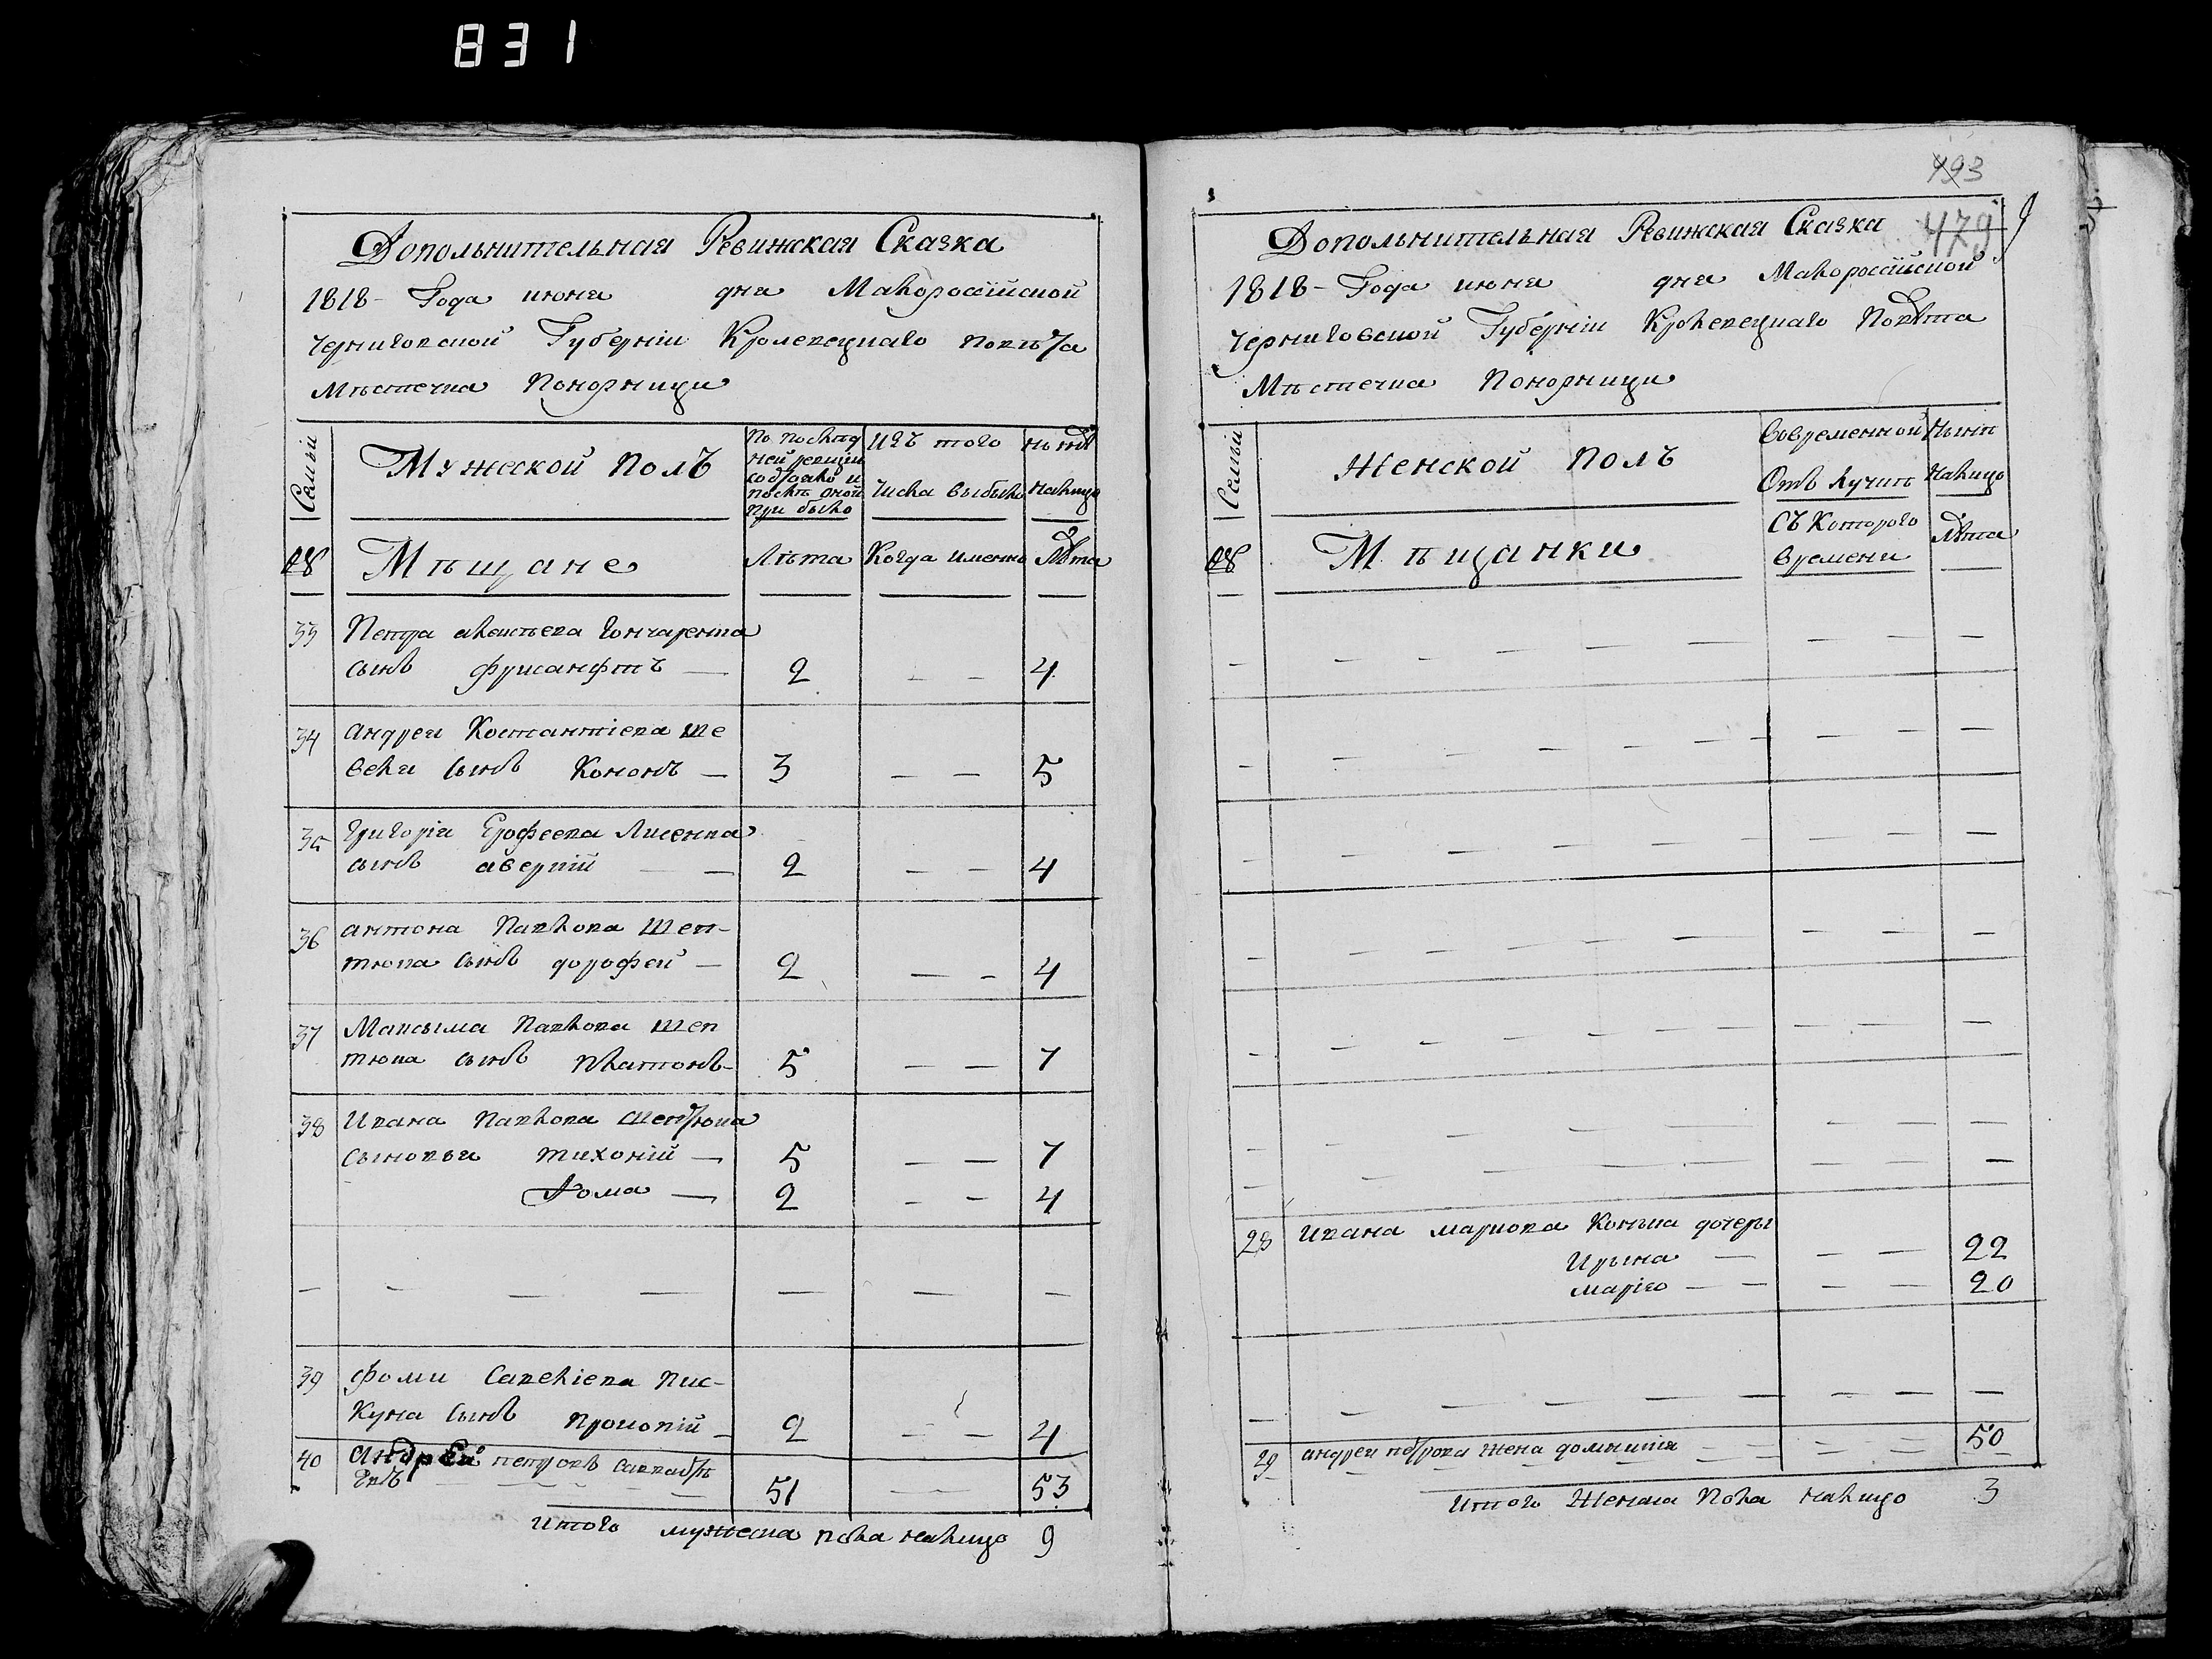 831
Дополнительная Ревижская Сказка
1818- Года июня дня Малороссійской
Черниговской Губерніи Кролевецкаго Повѣта
Мѣстечка Понорници
Семьи
Мужеской полъ
По послѣд
ней ревизіи
состояло и
послѣ оной
при было
изъ того
числа выбыло
нынѣ
налицо
№
Мѣщане
Лѣта
Когда именно
Лѣта
33 Петра алексѣева Гончаренка
сынъ фрисанфтъ — 2 — — 4
34 андрея Костантіева Ше
веля сынъ Кононъ — 3 — — 5
35 Григорія Ерофеева Лисенка
сынъ аверкій — — 2 — — 4
36 антона Павлова Шеп-
тюка сынъ дорофей — 2 — — 4
37 Максыма Павлова шеп
тюка сынъ Платонъ- 5 — — 7
38 Ивана Павлова Шептюка
сыновьи тихоній — 5 — — 7
Фома — 2 — — 4
39 фоми Савеліева Пис-
куна сынъ прокопій — 2 — — 4
40 Андрей петровъ
51 — — 53
итого мужеска пола налицо 9
493
479
Дополнительная Ревижская Сказка
1818- Года июня дня Малороссійской
Черниговской Губерніи Кролевецкаго Повѣта
Мѣстечка Понорници
Семьи
Женской полъ
Вовременной
Отълучкѣ
Нынѣ
налицо
№
Мѣщанки
Съ Которого
времени
Лѣта
28 ивана маркова Конша дочеры
Ирына — — — 22
марія — — — — 20
29 андрея петрова жена домникія — — — — 50
итого Женска пола налицо 3